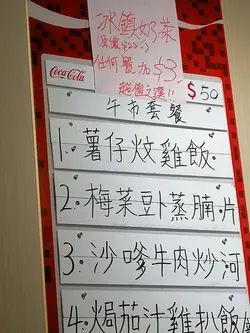 冰鎮奶茶
原價$22:
任何餐加$3
超值之選!!
Coca-Cola
$50
午市套餐
1.薯仔炆雞飯
2.梅菜卜蒸腩片
3.沙嗲牛肉炒河
4.焗茄汁雞扒飯